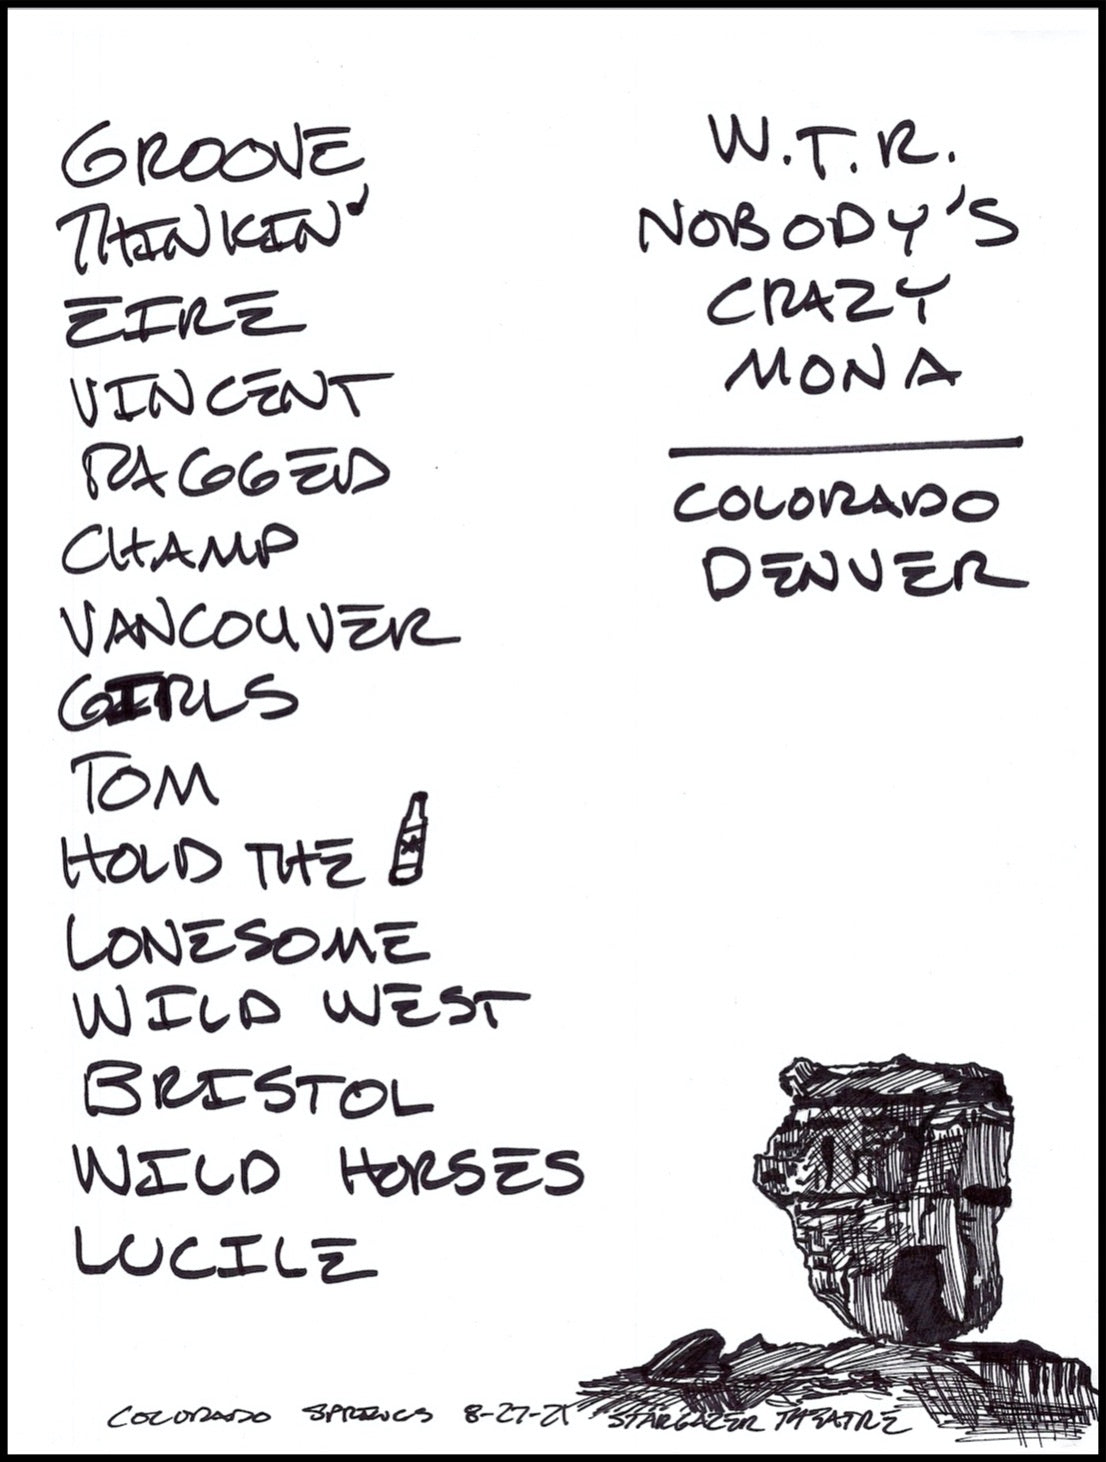 GROOVE
THINKIN'
EIRE
VINCENT
RAGGED
CHAMP
VANCOUVER
GIRLS
TOM
HOLD THE
LONESOME
WILD WEST
BRISTOL
WILD HORSES
LUCILE
W.T.R.
NOBODY'S
CRAZY
MONA
COLORADO
DENVER
COLORADO SPRINGS 8-27-21 STARGAZER THEATRE